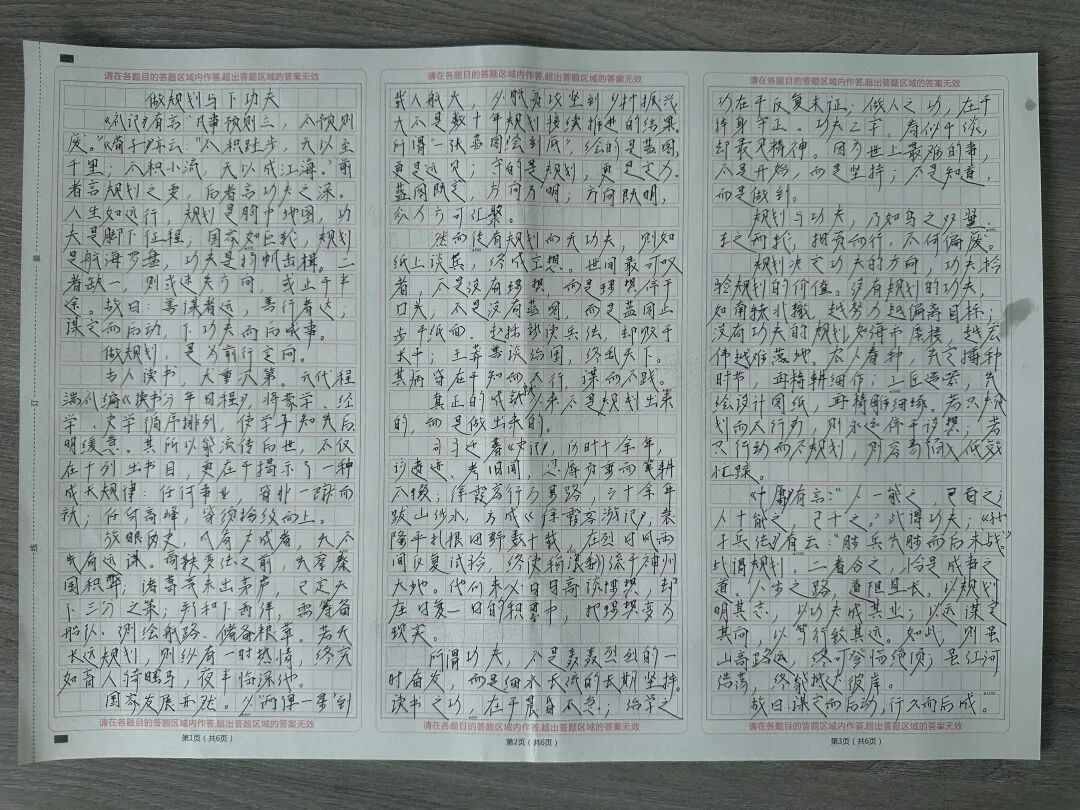 请在各题目的答题区域内作答,超出答题区域的答案无效
做规划与下功夫
《礼记》有言“凡事预则立，不预则
废。”《荀子》亦云：“不积跬步，无以至
千里；不积小流，无以成江海。”前
者言规划之要，后者言功夫之深。
人生如远行，规划是胸中地图，功
夫是脚下征程；国家如巨轮，规划
是航海罗盘，功夫是扬帆击楫。二
者缺一，则或迷失方向，或止于半
途。故曰：善谋者远，善行者达，
谋定而后动，下功夫而后成事。
做规划，是为前行定向。
古人读书，尤重次第。元代程
端礼编《读书分年日程》，将蒙学、经
学、史学循序排列，使学子知先后
明缓急。其所以能流传后世，不仅
在于列出书目，更在于揭示了一种
成长规律：任何事业，皆非一蹴而
就；任何高峰，皆须拾级而上。
放眼历史，凡有大成者，无不
先有远谋。商鞅变法之前，先察秦
国积弊；诸葛亮未出茅庐，已定天
下三分之策；郑和下西洋，需筹备
船队、测绘航路、储备粮草。若无
长远规划，则纵有一时热情，终究
如盲人骑瞎马，夜半临深池。
国家发展亦然。从“两弹一星”到
请在各题目的答题区域内作答,超出答题区域的答案无效
第1页（共6页）
请在各题目的答题区域内作答,超出答题区域的答案无效
载人航天，从脱贫攻坚到乡村振兴
无不是数十年规划接续推进的结果。
所谓“一张蓝图绘到底”，绘的是蓝图，
更是远见；守的是规划，更是定力。
蓝图既定，方向乃明；方向既明，
众力方可汇聚。
然而徒有规划而无功夫，则如
纸上谈兵，终成空想。世间最可叹
者，不是没有理想，而是理想停于
口头，不是没有蓝图，而是蓝图止
步于纸面。赵括熟读兵法，却败于
长平；王莽善谈治国，终乱天下。
其病皆在于知而不行，谋而不践。
真正的成就从来不是规划出来
的，而是做出来的。
司马迁著《史记》，历时十余年，
访遗迹、考旧闻，忍辱负重而笔耕
不辍；徐霞客行万里路，三十余年
跋山涉水，方成《徐霞客游记》；袁
隆平扎根田野数十载，在烈日风雨
间反复试验，终使稻浪翻流于神州
大地。他们未必日日高谈理想，却
在日复一日的积累中，把理想变为
现实。
所谓功夫，不是轰轰烈烈的一
时奋发，而是细水长流的长期坚持。
读书之功，在于晨昏不怠；治学之
请在各题目的答题区域内作答,超出答题区域的答案无效
第2页（共6页）
请在各题目的答题区域内作答,超出答题区域的答案无效
功在于反复求证；做人之功，在于
持身守正。功夫二字，看似平淡，
却最见精神。因为世上最难的事，
不是开始，而是坚持；不是知道，
而是做到。
规划与功夫，乃如鸟之双翼、
车之两轮，相资而行，不可偏废。
规划决定功夫的方向，功夫检
验规划的价值。没有规划的功夫，
如南辕北辙，越努力越偏离目标；
没有功夫的规划如海市蜃楼，越宏
伟越难落地。农人春种，先定播种
时节，再精耕细作；工匠造宏，先
绘设计图纸，再精雕细琢。若只规
划而不行动，则永远停于设想；若
只行动而不规划，则容易陷入低效
忙碌。
《中庸》有言：“人一能之，己百之；
人十能之，己千之。”此谓功夫；《孙
子兵法》有云：“胜兵先胜而后求战。”
此谓规划。二者合之，恰是成事之
道。人生之路，道阻且长，以规划
明其志，以功夫成其业；以远谋定
其向，以笃行致其远。如此，则虽
山高路远，终可登临绝顶；虽江河
浩荡，终能抵达彼岸。
故曰谋定而后动，行久而后成。
请在各题目的答题区域内作答,超出答题区域的答案无效
第3页（共6页）